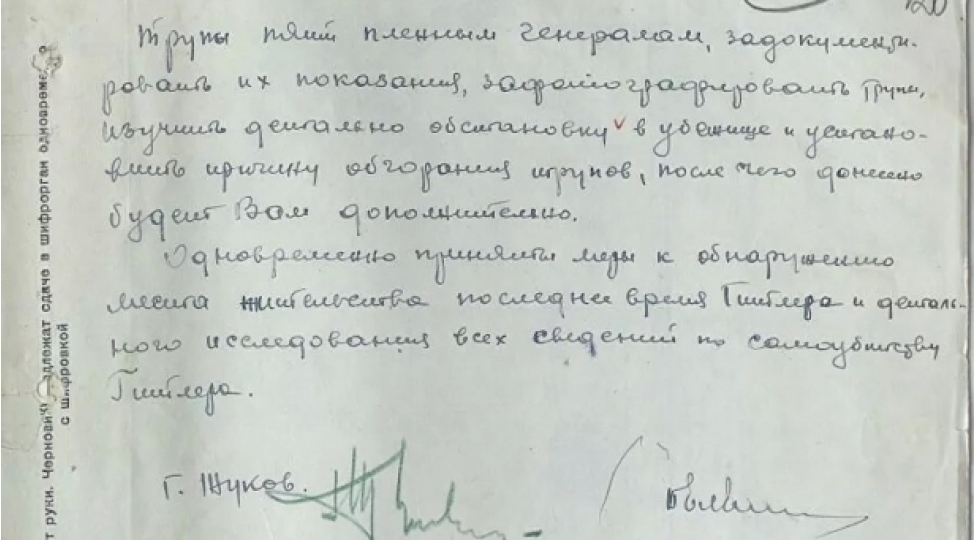 120
трупы этим пленным генералам, задокументи-
ровать их показания, зафотографировать трупы,
изучить детально обстановку в убежище и устано-
вить причину обгорания трупов, после чего донесено
будет Вам дополнительно.
Одновременно приняты меры к обнаружению
места жительства последнее время Гитлера и деталь-
ного исследования всех сведений по самоубийству
Гитлера.
Г. Жуков.
т руки. Чернови длежат сдаче в шифрорган одновреме
с шифровкой